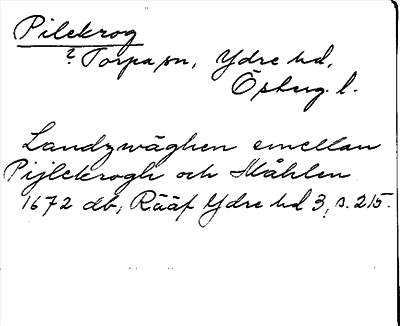 Pilekrog
? Torpa sn, Ydre hd,
Österg. l.
Landzwäghen emellan
Pijlekrogh och Måhlen
1672 db, Rääf Ydre hd 3, s. 215.